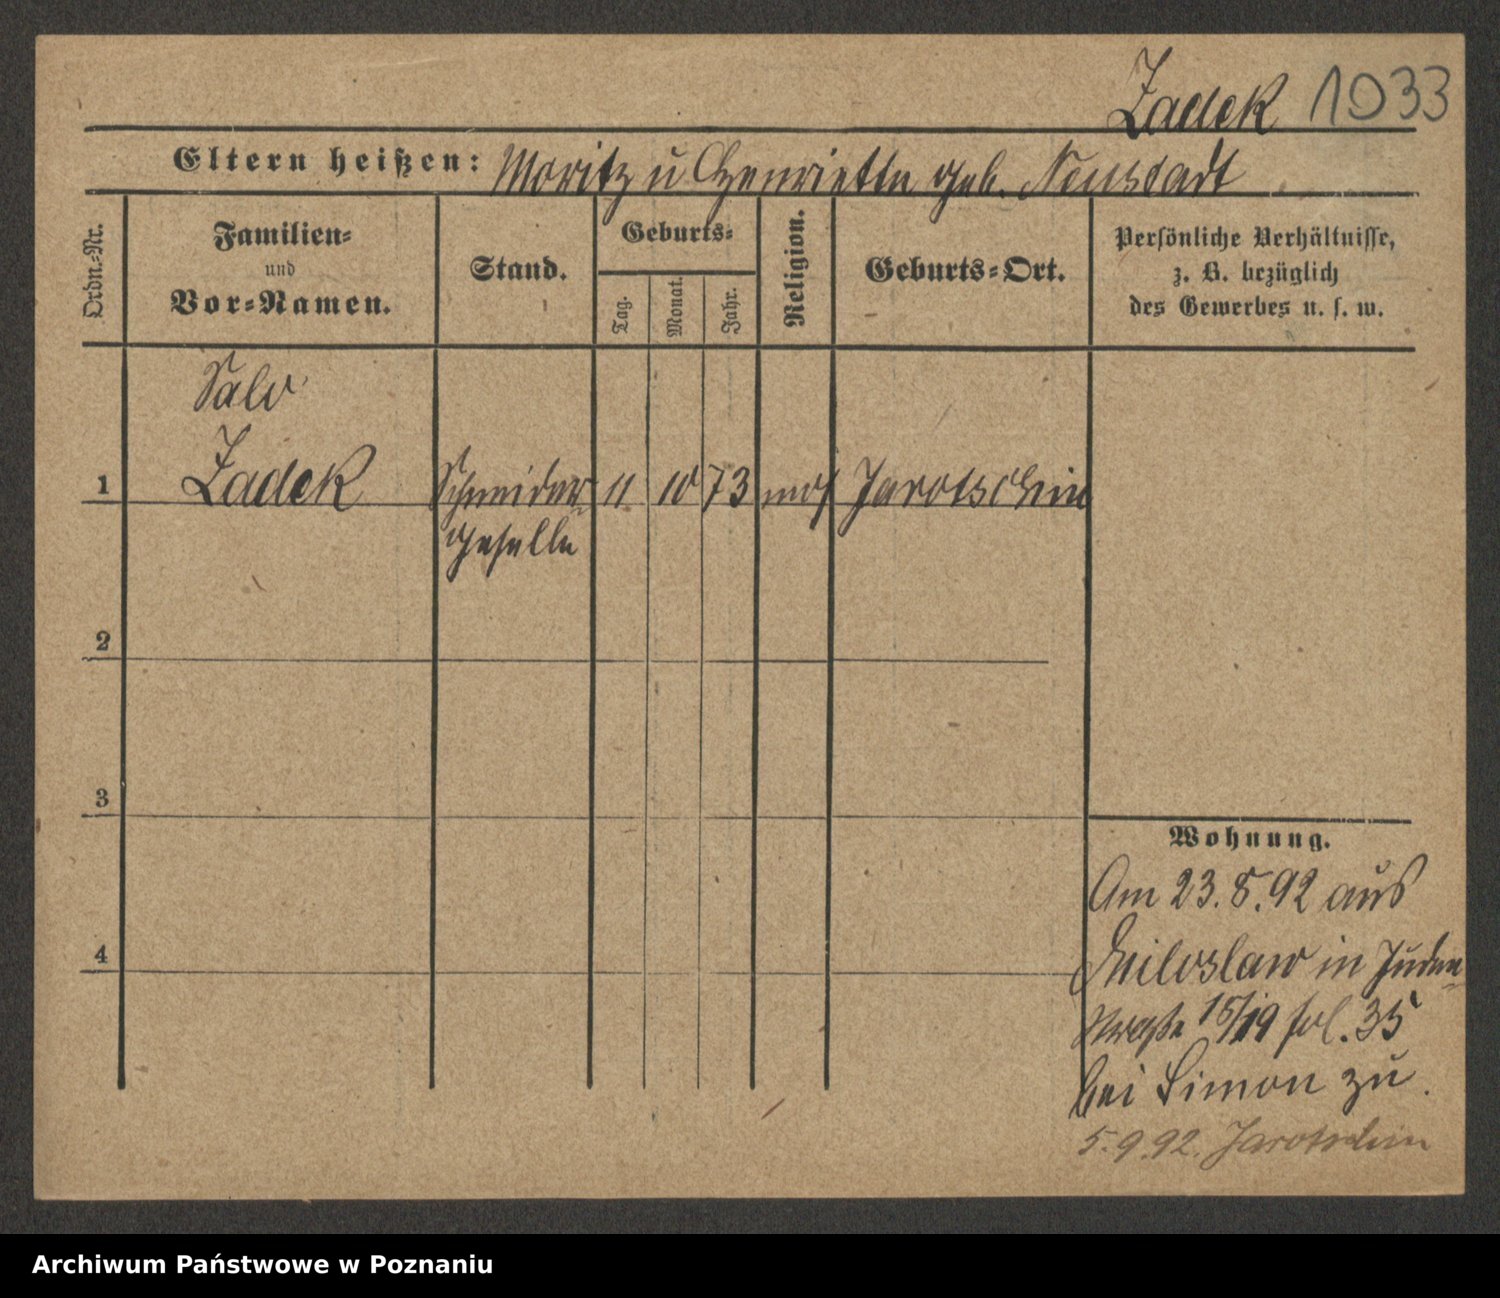 Zadek 1033
Eltern heißen: Moritz u Henriette geb. Neustadt
Ordn.-Nr.
Familien-
und
Vor-Namen.
Stand.
Geburts-
Tag.
Monat.
Jahr.
Religion.
Geburts-Ort.
Persönliche Verhältnisse,
z. B. bezüglich
des Gewerbes u. s. w.
Salo
1 Zadek Schneider- 11 10 73 mos Jarotschin
geselle
2
3
4
Wohnung.
Am 23.8.92 aus
Miloslaw in Juden-
straße 15/19 fol. 35
bei Simon zu.
5.9.92. Jarotschin
Archiwum Państwowe w Poznaniu